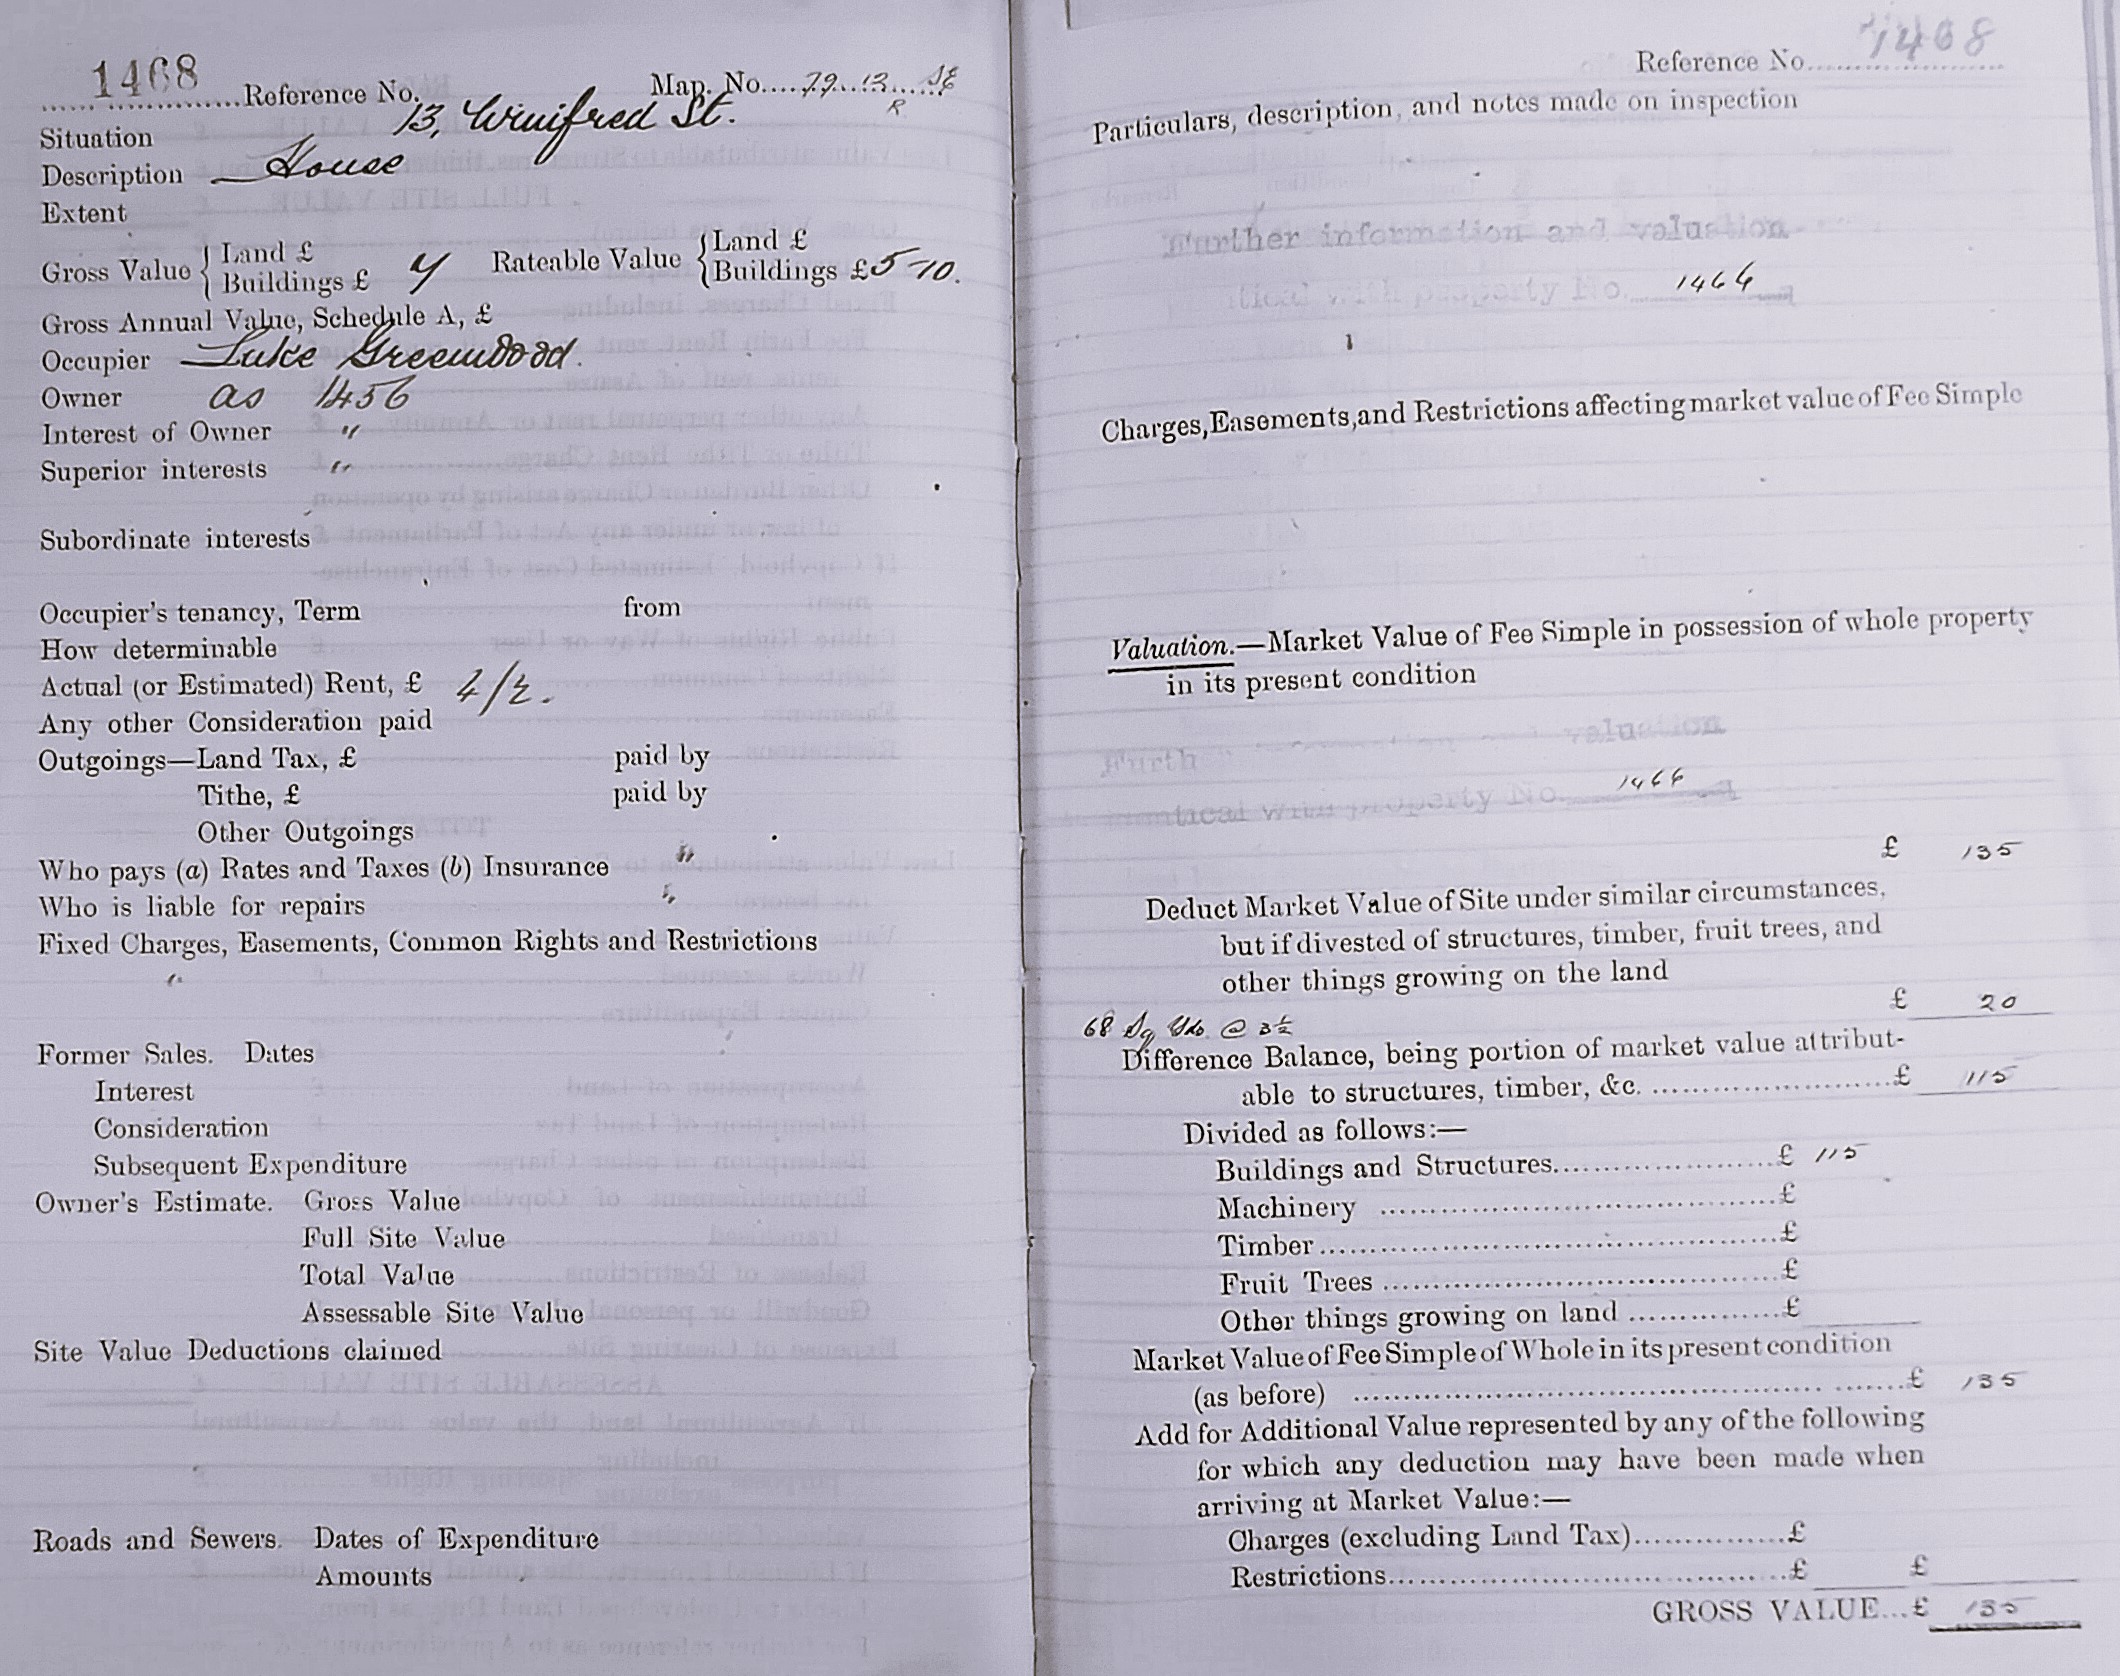 1468 Reference No. Map. No. 79.13. SE
R
Situation 13, Winifred St.
Description House
Extent
Gross Value { Land £ Rateable Value { Land £
Buildings £ 7 Buildings £ 5-10.
Gross Annual Value, Schedule A, £
Occupier Luke Greenwood.
Owner as 1456
Interest of Owner "
Superior interests "
Subordinate interests
Occupier's tenancy, Term from
How determinable
Actual (or Estimated) Rent, £ 4/2.
Any other Consideration paid
Outgoings—Land Tax, £ paid by
Tithe, £ paid by
Other Outgoings
Who pays (a) Rates and Taxes (b) Insurance "
Who is liable for repairs "
Fixed Charges, Easements, Common Rights and Restrictions
"
Former Sales. Dates
Interest
Consideration
Subsequent Expenditure
Owner's Estimate. Gross Value
Full Site Value
Total Value
Assessable Site Value
Site Value Deductions claimed
Roads and Sewers. Dates of Expenditure
Amounts
Reference No. 1468
Particulars, description, and notes made on inspection
Further information and valuation
tical with property No. 1466
Charges, Easements, and Restrictions affecting market value of Fee Simple
Valuation.—Market Value of Fee Simple in possession of whole property
in its present condition
Furth valuation
entical with property No. 1466
£ 135
Deduct Market Value of Site under similar circumstances,
but if divested of structures, timber, fruit trees, and
other things growing on the land
£ 20
68 Sq Yds. @ 3½
Difference Balance, being portion of market value attribut-
able to structures, timber, &c. £ 115
Divided as follows:—
Buildings and Structures £ 115
Machinery £
Timber £
Fruit Trees £
Other things growing on land £
Market Value of Fee Simple of Whole in its present condition
(as before) £ 135
Add for Additional Value represented by any of the following
for which any deduction may have been made when
arriving at Market Value:—
Charges (excluding Land Tax) £
Restrictions £ £
GROSS VALUE... £ 135